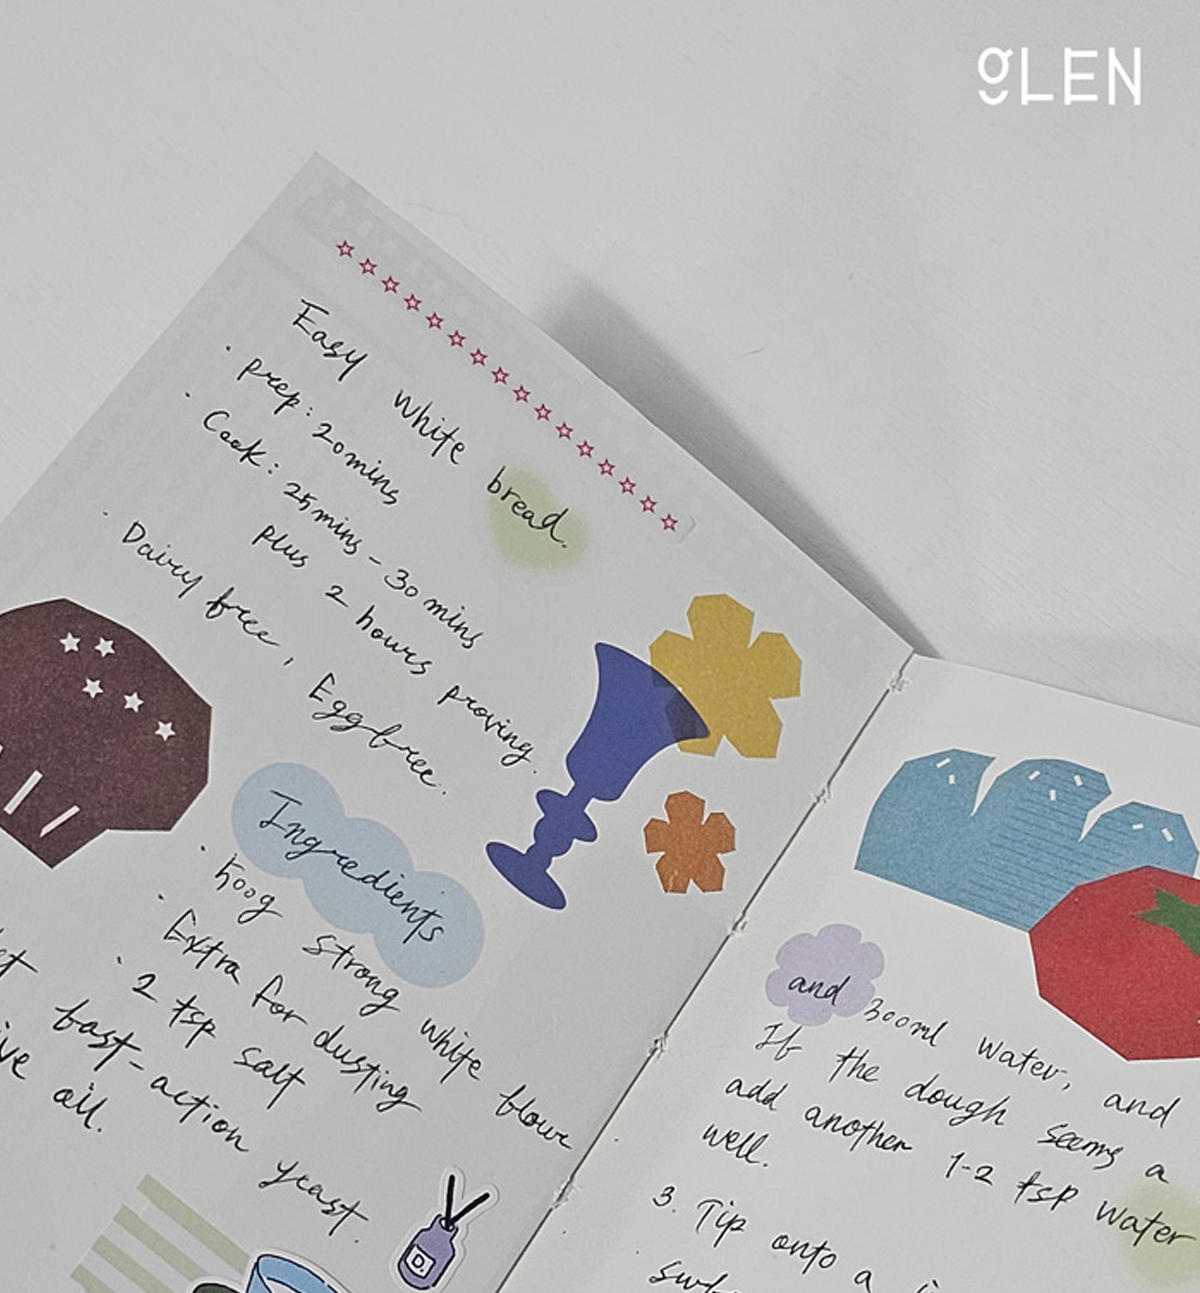 gLEN
Easy white bread.
· prep: 20mins
· Cook: 25mins - 30 mins
plus 2 hours proving.
· Dairy free, Eggfree.
Ingredients
· 500g strong white flour
· Extra for dusting
· 2 tsp salt
fast-action yeast.
oil.
D.
and 300ml water, and
If the dough seems a
add another 1-2 tsp water
well.
3. Tip onto a